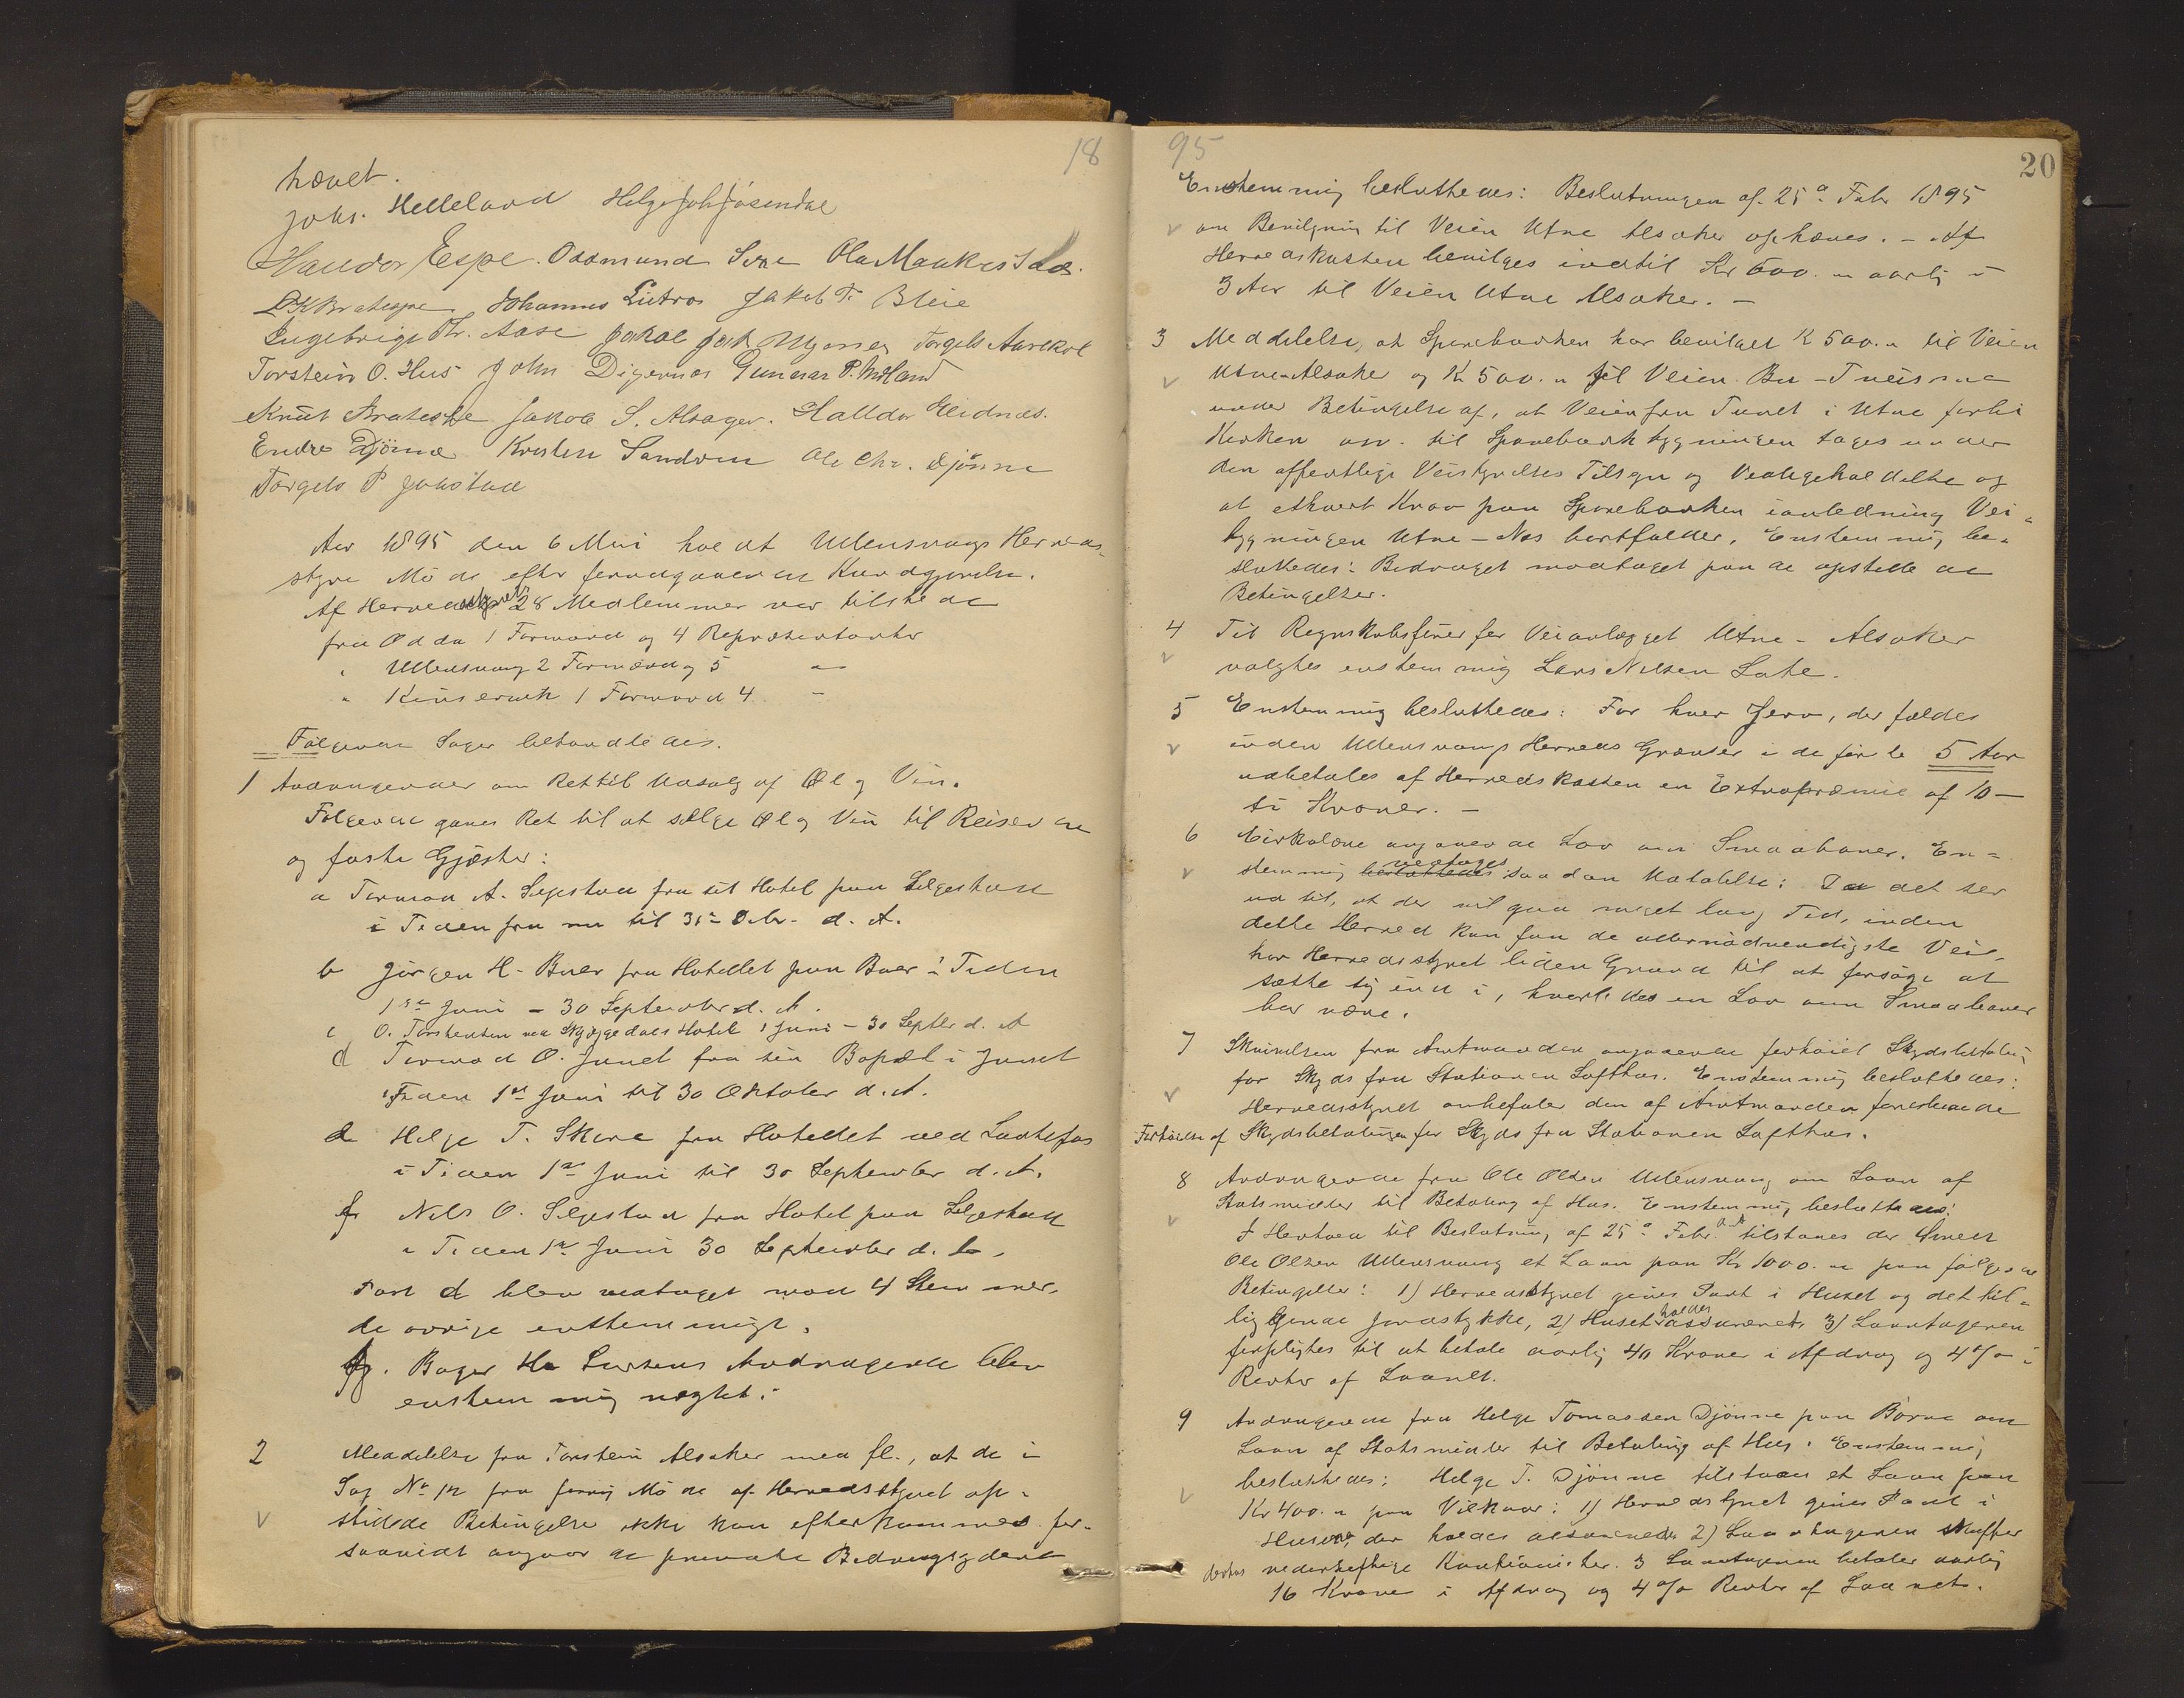 18
hævet.
Johs. Helleland Helge Joh Jaastad
Haldor Espe. Aasmund Sexe Ola
Johannes Lutro Jakob T. Bleie
Ingebrigt Th. Aase Jakob Torgels Aarekol
Torstein O. Hus John Digernes Gunnar P.
Knut Bratespe Jakob S. Alsager. Halldor Eidnæs.
Endre Djönne Kristen Sandven Ole Chr. Djönne
Torgels P Jaastad
Aar 1895 den 6 Mai holdt Ullensvangs Herreds-
styre Möde efter forudgaaende Kundgjørelse.
Af Herredsstyrets 28 Medlemmer var tilstede
fra Odda 1 Formand og 4 Repræsentanter
" Ullensvang 2 Formænd og 5 "
" Kinservik 1 Formand 4 "
Følgende Sager behandledes.
1 Andragender om Ret til Udsalg af Øl og Vin.
Følgende gaves Ret til at sælge Øl og Vin til Reisende
og faste Gjæster:
a Tormod A. Seljestad fra sit Hotel paa Seljestad
i Tiden fra nu til 31te Debr. d. A.
b Jørgen H. Buer fra Hotellet paa Buer i Tiden
1ste Juni - 30 September d. A.
c O. Torsteinsen ved Skjæggedals Hotel 1 Juni - 30 Septbr d. A
d Tormod O. Junet fra sin Bopæl i Junet
i Tiden 1ste Juni til 30 Oktober d. A.
e Helge T. Skare fra Hotellet ved Laatefos
i Tiden 1ste Juni til 30 September d. A.
f Nils O. Seljestad fra Hotel paa Seljestad
i Tiden 1ste Juni 30 September d. A.
Post d blev vedtaget mod 4 Stemmer,
de øvrige enstemmigt.
g. Bager H. Larsens Andragende blev
enstemmig nægtet.
2 Meddelelse fra Torstein Alsaker med fl., at de i
Sag No 12 fra forrig Möde af Herredsstyret op-
stillede Betingelse ikke kan efterkommes for-
saavidt angaar de private Bidragsydere
95
20
Enstemmig besluttedes: Beslutningen af 25de Febr 1895
om Bevilgning til Veien Utne Alsaker ophæves. - Af
Herredskassen bevilges indtil Kr 600. " aarlig i
3 Aar til Veien Utne Alsaker. -
3 Meddelelse, at Sparebanken har bevilget K 500. " til Veien
Utne-Alsaker og K 500. " til Veien Bu - Tveisme
under Betingelse af, at Veien fra Tunet i Utne forbi
Kirken osv. til Sparebankbygningen tages under
den offentlige Veistyrelses Tilsyn og Vedligeholdelse og
at ethvert Krav paa Sparebanken i anledning Vei-
bygningen Utne - Nes bortfalder. Enstemmig be-
sluttedes: Bidraget modtaget paa de opstillede
Betingelser.
4 Til Regnskabsfører for Veianlægget Utne - Alsaker
valgtes enstemmig Lars Nilsen Lote.
5 Enstemmig besluttedes: For hver Jerv, der fældes
inden Ullensvangs Herreds Grænser i de første 5 Aar
udbetales af Herredskassen en Extrapræmie af 10 -
ti Kroner. -
6 Cirkulære angaaende Lov om Smaabaner. En-
stemmig besluttedes vedtoges saadan Udtalelse: Da det ser
ud til, at der vil gaa meget lang Tid, inden
dette Herred kan faa de allernødvendigste Veie,
har Herredsstyret liden Grund til at forsøge at
sætte sig ind i, hvorledes en Lov om Smaabaner
bør være.
7 Skrivelsen fra Amtmanden angaaende forhøiet Skydsbetaling
for Skyds fra Stationen Lofthus. Enstemmig besluttedes:
Herredsstyret anbefaler den af Amtmanden foreslaaede
Forhøielse af Skydsbetalingen for Skyds fra Stationen Lofthus.
8 Andragende fra Ole Olsen Ullensvang om Laan af
Statsmidler til Betaling af Hus. Enstemmig besluttedes:
I Henhold til Beslutning af 25de Febr. d. A tilstaaes der Smed
Ole Olsen Ullensvang et Laan paa Kr 1000. " paa følgende
Betingelser: 1) Herredsstyret gives Pant i Huset og det til-
liggende Jordstykke, 2) Huset holdes assureret, 3) Laantageren
forpligtes til at betale aarlig 40 Kroner i Afdrag og 4 % i
Renter af Laanet.
9 Andragende fra Helge Tomassen Djönne paa Børve om
Laan af Statsmidler til Betaling af Hus. Enstemmig
besluttedes: Helge T. Djönne tilstaaes et Laan paa
Kr 400. " paa Vilkaar: 1) Herredsstyret gives Pant i
Husene, der holdes assurerede 2) Laantageren skaffer
desuden vederheftige Kautionister. 3 Laantageren betaler aarlig
16 Kroner i Afdrag og 4 % Renter af Laanet.